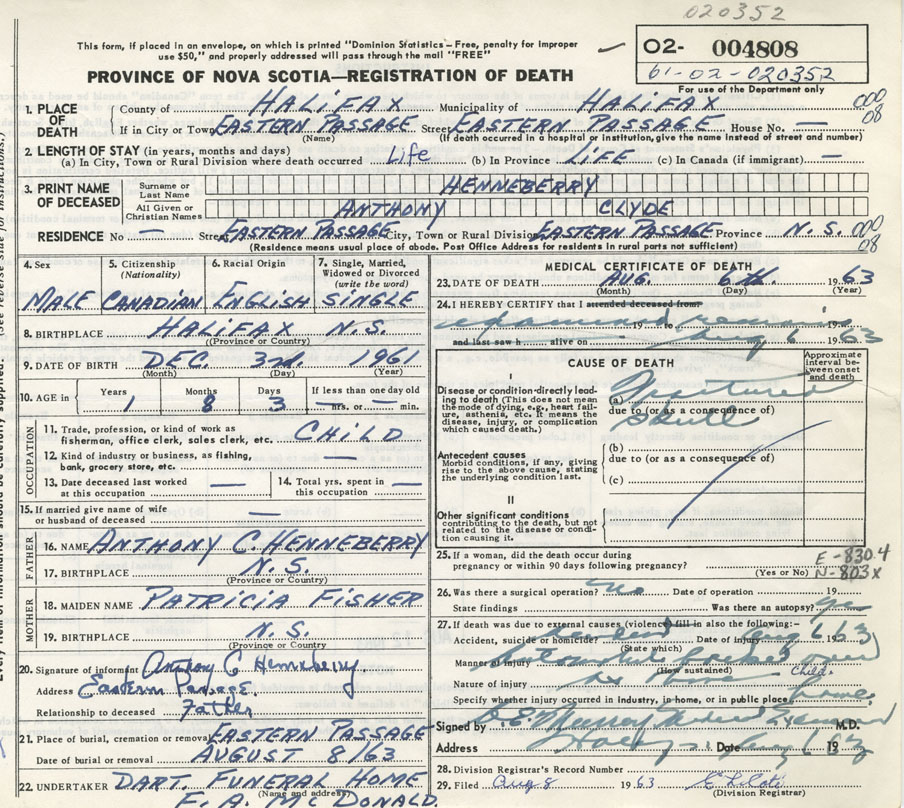 020352
This form, if placed in an envelope, on which is printed "Dominion Statistics—Free, penalty for improper
use $50," and properly addressed will pass through the mail "FREE"
O2- 004808
61-02-020352
For use of the Department only
PROVINCE OF NOVA SCOTIA—REGISTRATION OF DEATH
1. PLACE OF DEATH County of HALIFAX Municipality of HALIFAX 000 08
If in City or Town EASTERN PASSAGE Street EASTERN PASSAGE House No. —
(Name) (If death occurred in a hospital or institution, give the name instead of street and number)
2. LENGTH OF STAY (in years, months and days)
(a) In City, Town or Rural Division where death occurred Life (b) In Province LIFE (c) In Canada (if immigrant) —
3. PRINT NAME OF DECEASED Surname or Last Name HENNEBERRY
All Given or Christian Names ANTHONY CLYDE
RESIDENCE No — Street EASTERN PASSAGE City, Town or Rural Division EASTERN PASSAGE Province N.S. 000 08
(Residence means usual place of abode. Post Office Address for residents in rural parts not sufficient)
4. Sex 5. Citizenship (Nationality) 6. Racial Origin 7. Single, Married, Widowed or Divorced (write the word)
MALE CANADIAN ENGLISH SINGLE
8. BIRTHPLACE HALIFAX N.S.
(Province or Country)
9. DATE OF BIRTH DEC. 3rd. 1961
(Month) (Day) (Year)
10. AGE in Years 1 Months 8 Days 3 If less than one day old — hrs. or — min.
OCCUPATION
11. Trade, profession, or kind of work as fisherman, office clerk, sales clerk, etc. CHILD
12. Kind of industry or business, as fishing, bank, grocery store, etc. —
13. Date deceased last worked at this occupation — 14. Total yrs. spent in this occupation —
15. If married give name of wife or husband of deceased —
FATHER
16. NAME ANTHONY C. HENNEBERRY
17. BIRTHPLACE N.S.
(Province or Country)
MOTHER
18. MAIDEN NAME PATRICIA FISHER
19. BIRTHPLACE N.S.
(Province or Country)
20. Signature of informant Anthony C Henneberry
Address Eastern Passage.
Relationship to deceased Father
21. Place of burial, cremation or removal EASTERN PASSAGE
Date of burial or removal AUGUST 8/63
22. UNDERTAKER DART. FUNERAL HOME
(Name and address)
F. A. McDONALD
MEDICAL CERTIFICATE OF DEATH
23. DATE OF DEATH AUG. 6th 1963
(Month) (Day) (Year)
24. I HEREBY CERTIFY that I attended deceased from
examined remains 19 to 19
and last saw h alive on Aug 6 1963
CAUSE OF DEATH
Approximate interval between onset and death
I
Disease or condition directly leading to death (This does not mean the mode of dying, e.g., heart failure, asthenia, etc. It means the disease, injury, or complication which caused death.)
(a) Fractured
due to (or as a consequence of)
Skull
Antecedent causes
Morbid conditions, if any, giving rise to the above cause, stating the underlying condition last.
(b)
due to (or as a consequence of)
(c)
II
Other significant conditions
contributing to the death, but not related to the disease or condition causing it.
25. If a woman, did the death occur during pregnancy or within 90 days following pregnancy?
(Yes or No)
E-830.4
N-803x
26. Was there a surgical operation? No Date of operation 19
State findings Was there an autopsy? yes
27. If death was due to external causes (violence) fill in also the following:—
Accident, suicide or homicide? Date of injury Aug 6 1963
(State which)
Manner of injury
(How sustained) Child.
Nature of injury
Specify whether injury occurred in Industry, in home, or in public place home
Signed by M.D.
Address Date 19
28. Division Registrar's Record Number
29. Filed Aug 8 1963
(Division Registrar)
(See reverse side for instructions.)